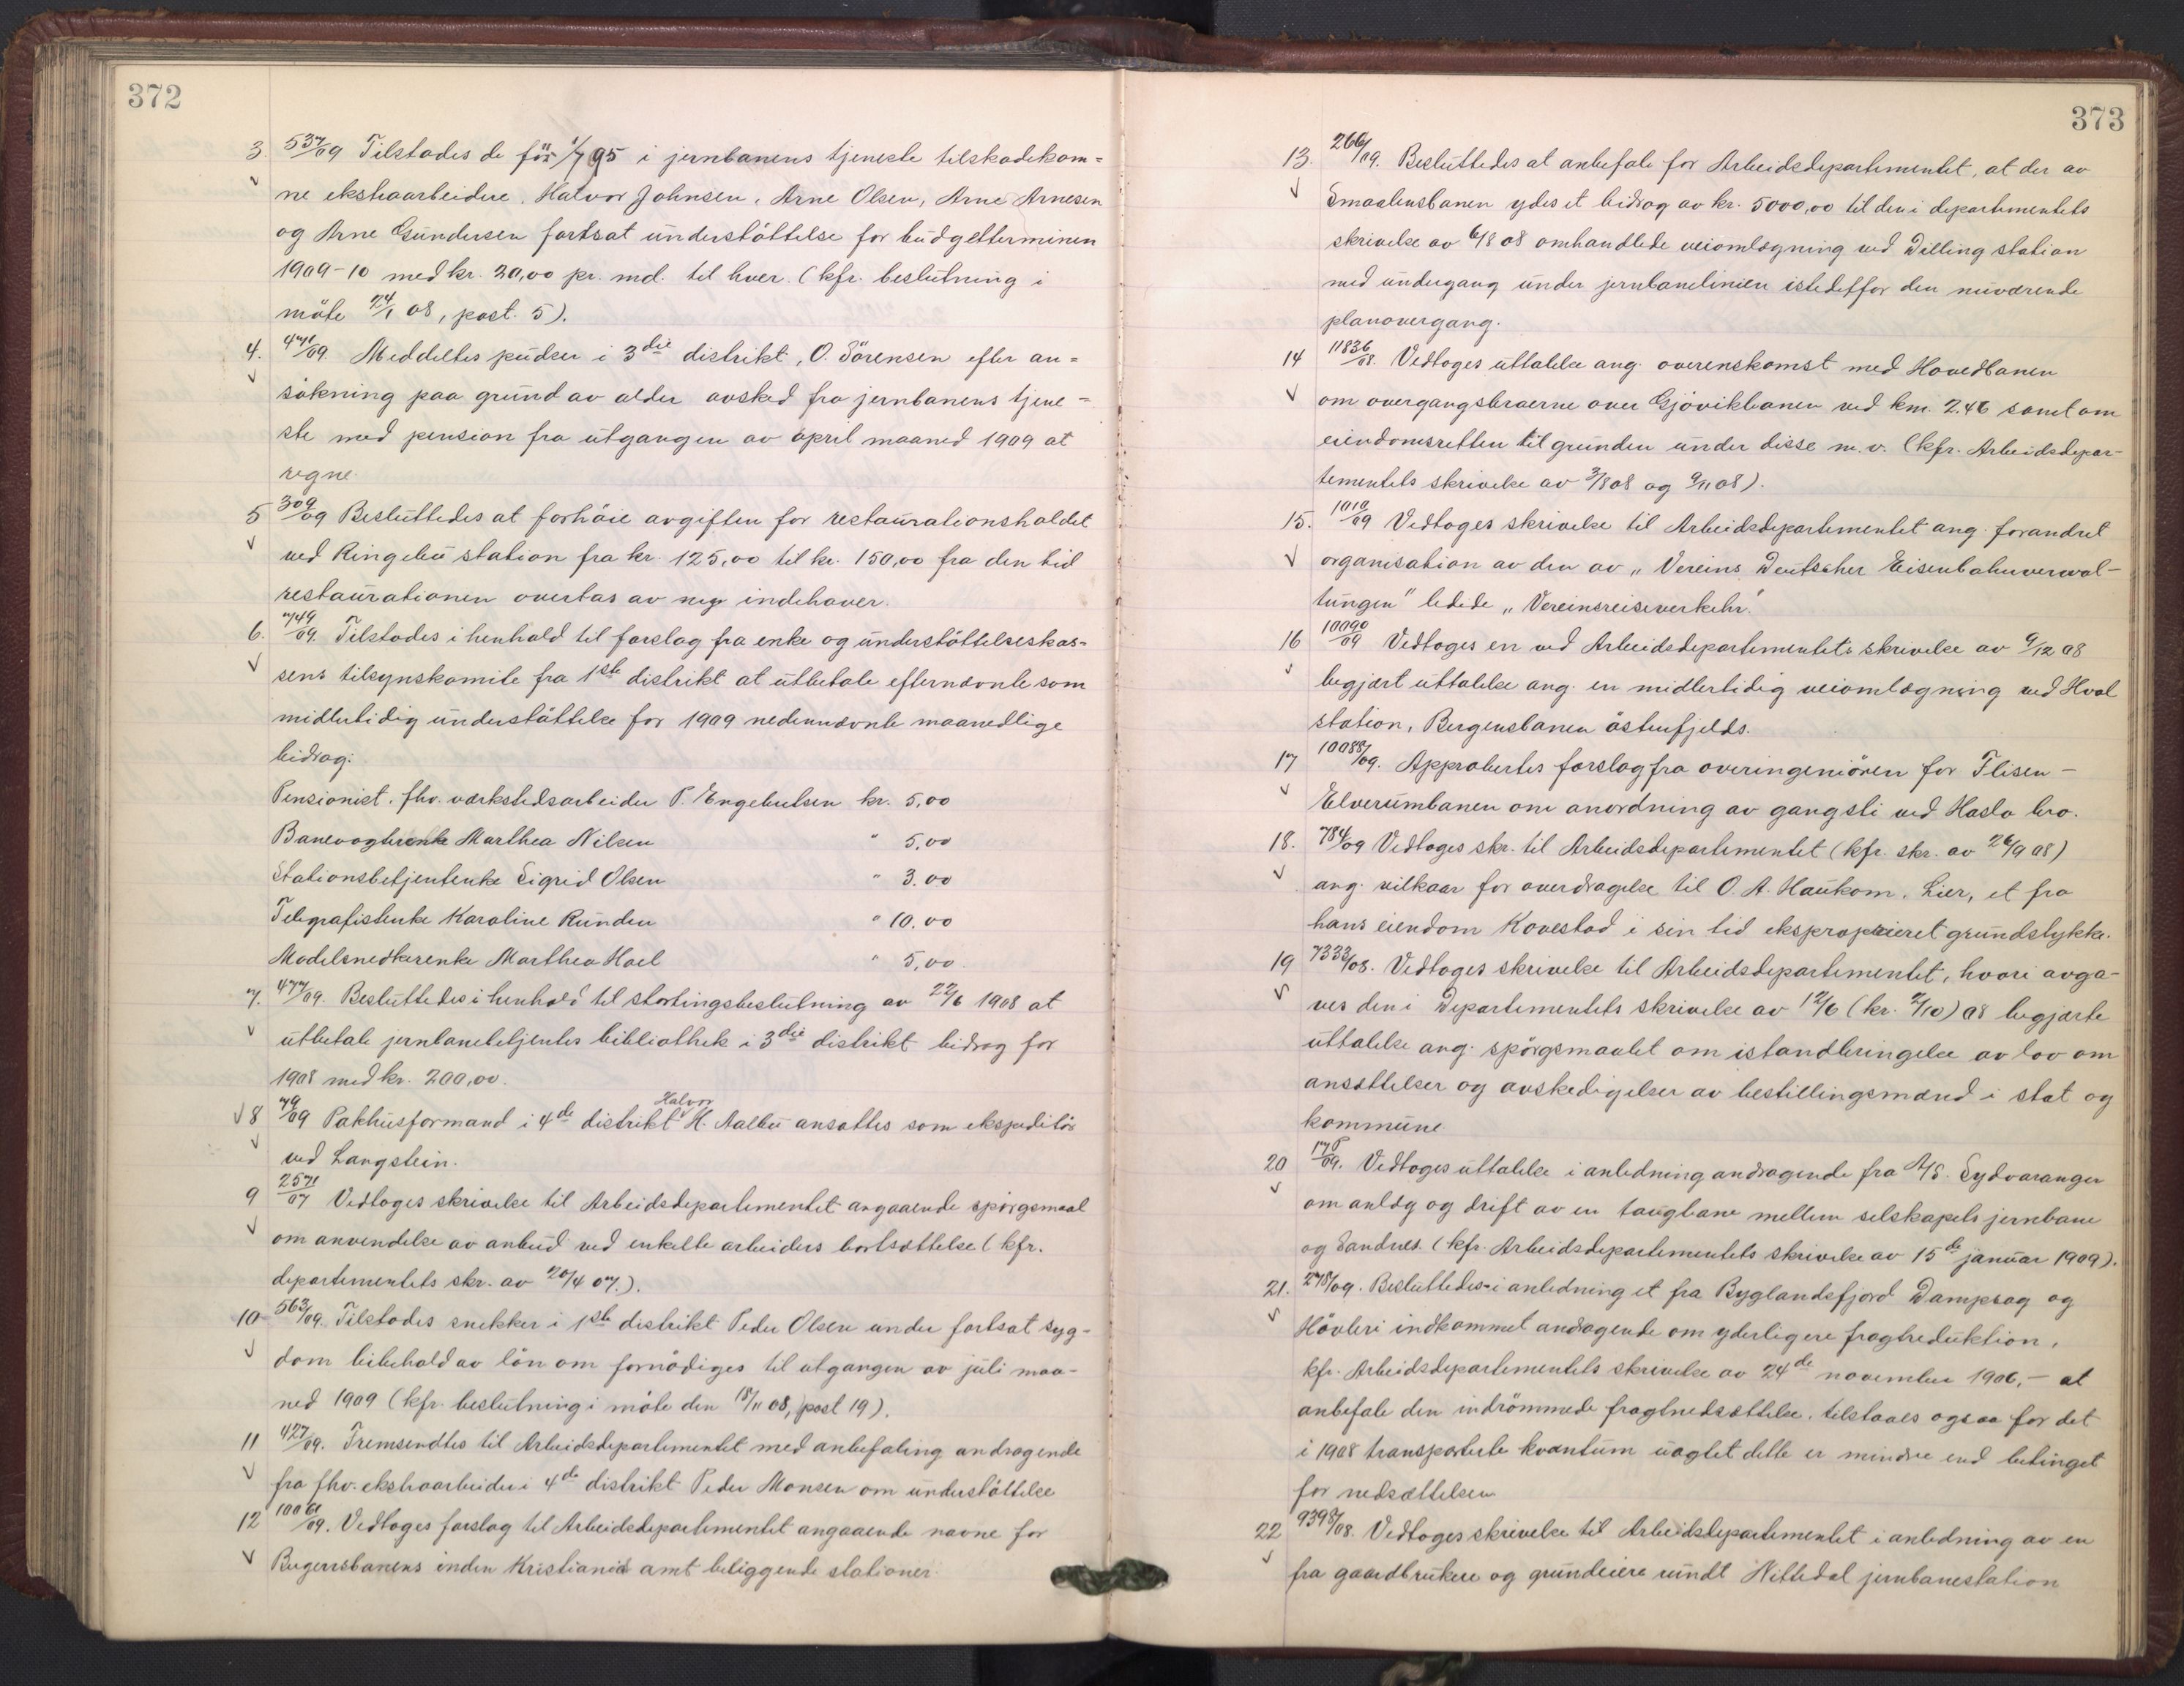 372
3. 537/09 Tilstodes de før 1/7 95 i jernbanens tjeneste tilskadekom=
ne ekstraarbeidere, Halvor Johnsen, Arne Olsen, Arne Arnesen
og Arne Gundersen fortsat understöttelse for budgetterminen
1909-10 med kr. 20,00 pr. md. til hver. (kfr. beslutning i
möte 24/1 08, post. 5).
4. 471/09. Meddeltes pudser i 3die distrikt, O. Sörensen efter an=
sökning paa grund av alder avsked fra jernbanens tjene=
ste med pension fra utgangen av april maaned 1909 at
regne.
5 309/09 Besluttedes at forhöie avgiften for restaurationsholdet
ved Ringebu station fra kr. 125,00 til kr. 150,00 fra den tid
restaurationen overtas av ny indehaver.
6. 749/09. Tilstodes i henhold til forslag fra enke og understöttelseskas=
sens tilsynskomite fra 1ste distrikt at utbetale efternævnte som
midlertidig understöttelse for 1909 nedennævnte maanedlige
bidrag:
Pensionist. fhv. værkstedsarbeider P. Engebretsen kr. 5,00
Banevogterenke Marthea Nilsen " 5,00
Stationsbetjentenke Sigrid Olsen " 3.00
Telegrafistenke Karoline Runden " 10.00
Modelsnedkerenke Marthea Hoel " 5,00
7. 477/09. Besluttedes i henhold til stortingsbeslutning av 22/6 1908 at
utbetale jernbanebetjentes bibliothek i 3die distrikt bidrag for
1908 med kr. 200,00.
8 79/09 Pakhusformand i 4de distrikt Halvor H. Aalbu ansattes som ekspeditör
ved Langstein.
9 2571/07 Vedtoges skrivelse til Arbeidsdepartementet angaaende spörgsmaal
om anvendelse av anbud ved enkelte arbeiders bortsættelse (kfr.
departementets skr. av 20/4 07.).
10 563/09. Tilstodes snekker i 1ste distrikt Peder Olsen under fortsat syg=
dom bibehold av lön om fornödiges til utgangen av juli maa=
ned 1909 (kfr. beslutning i möte den 18/11 08, post 19).
11 427/09. Fremsendtes til Arbeidsdepartementet med anbefaling andragende
fra fhv. ekstraarbeider i 4de distrikt Peder Monsen om understöttelse
12 10061/09. Vedtoges forslag til Arbeidsdepartementet angaaende navne for
Bergensbanens inden Kristians amt beliggende stationer.
373
13. 266/09. Besluttedes at anbefale for Arbeidsdepartementet, at der av
Smaalensbanen ydes et bidrag av kr. 5000,00 til den i departementets
skrivelse av 6/8 08 omhandlede veiomlægning ved Dilling station
med undergang under jernbanelinien istedetfor den nuværende
planovergang.
14 11836/08. Vedtoges uttalelse ang. overenskomst med Hovedbanen
om overgangsbroerne over Gjövikbanen ved km. 2.46 samt om
eiendomsretten til grunden under disse m.v. (kfr. Arbeidsdepar-
tementets skrivelse av 3/8 08 og 9/11 08).
15. 1010/09 Vedtoges skrivelse til Arbeidsdepartementet ang. forandret
organisation av den av „Vereins Deutscher Eisenbahnverwal-
tungen" ledede „Vereinsreiseverkehr".
16 10090/09 Vedtoges en ved Arbeidsdepartementets skrivelse av 9/12 08
begjært uttalelse ang. en midlertidig veiomlægning ved Hval
station, Bergensbanen östenfjelds.
17 10088/09. Approbertes forslag fra overingeniören for Flisen-
Elverumbanen om anordning av gangsti ved Hasla bro.
18. 784/09 Vedtoges skr. til Arbeidsdepartementet (kfr. skr. av 26/9 08)
ang. vilkaar for overdragelse til O. A. Haukom, Lier, et fra
hans eiendom Kovestad i sin tid ekspropriieret grundstykke.
19 7333/08. Vedtoges skrivelse til Arbeidsdepartementet, hvori avga-
ves den i Departementets skrivelse av 12/6 (kr. 2/10) 08 begjærte
uttalelse ang. spörgsmaalet om istandbringelse av lov om
ansættelser og avskedigelser av bestillingsmænd i stat og
kommune.
20 178/09. Vedtoges uttalelse i anledning andragende fra A/S. Sydvaranger
om anlæg og drift av en taugbane mellem selskapets jernbane
og Sandnes. (kfr. Arbeidsdepartementets skrivelse av 15de januar 1909).
21. 278/09. Besluttedes i anledning et fra Byglandsfjord Dampsag og
Hövleri indkommet andragende om yderligere fragtreduktion,
kfr. Arbeidsdepartementets skrivelse av 24de november 1906, - at
anbefale den indrömmede fragtnedsættelse, tilstaaes ogsaa for det
i 1908 transporterte kvantum uagtet dette er mindre end betinget
for nedsættelsen.
22 9398/08. Vedtoges skrivelse til Arbeidsdepartementet i anledning av en
fra gaardbrukere og grundeiere rundt Nittedal jernbanestation